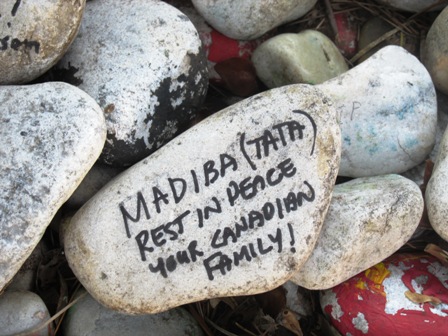 MADIBA (TATA)
REST IN PEACE
YOUR CANADIAN
FAMILY!